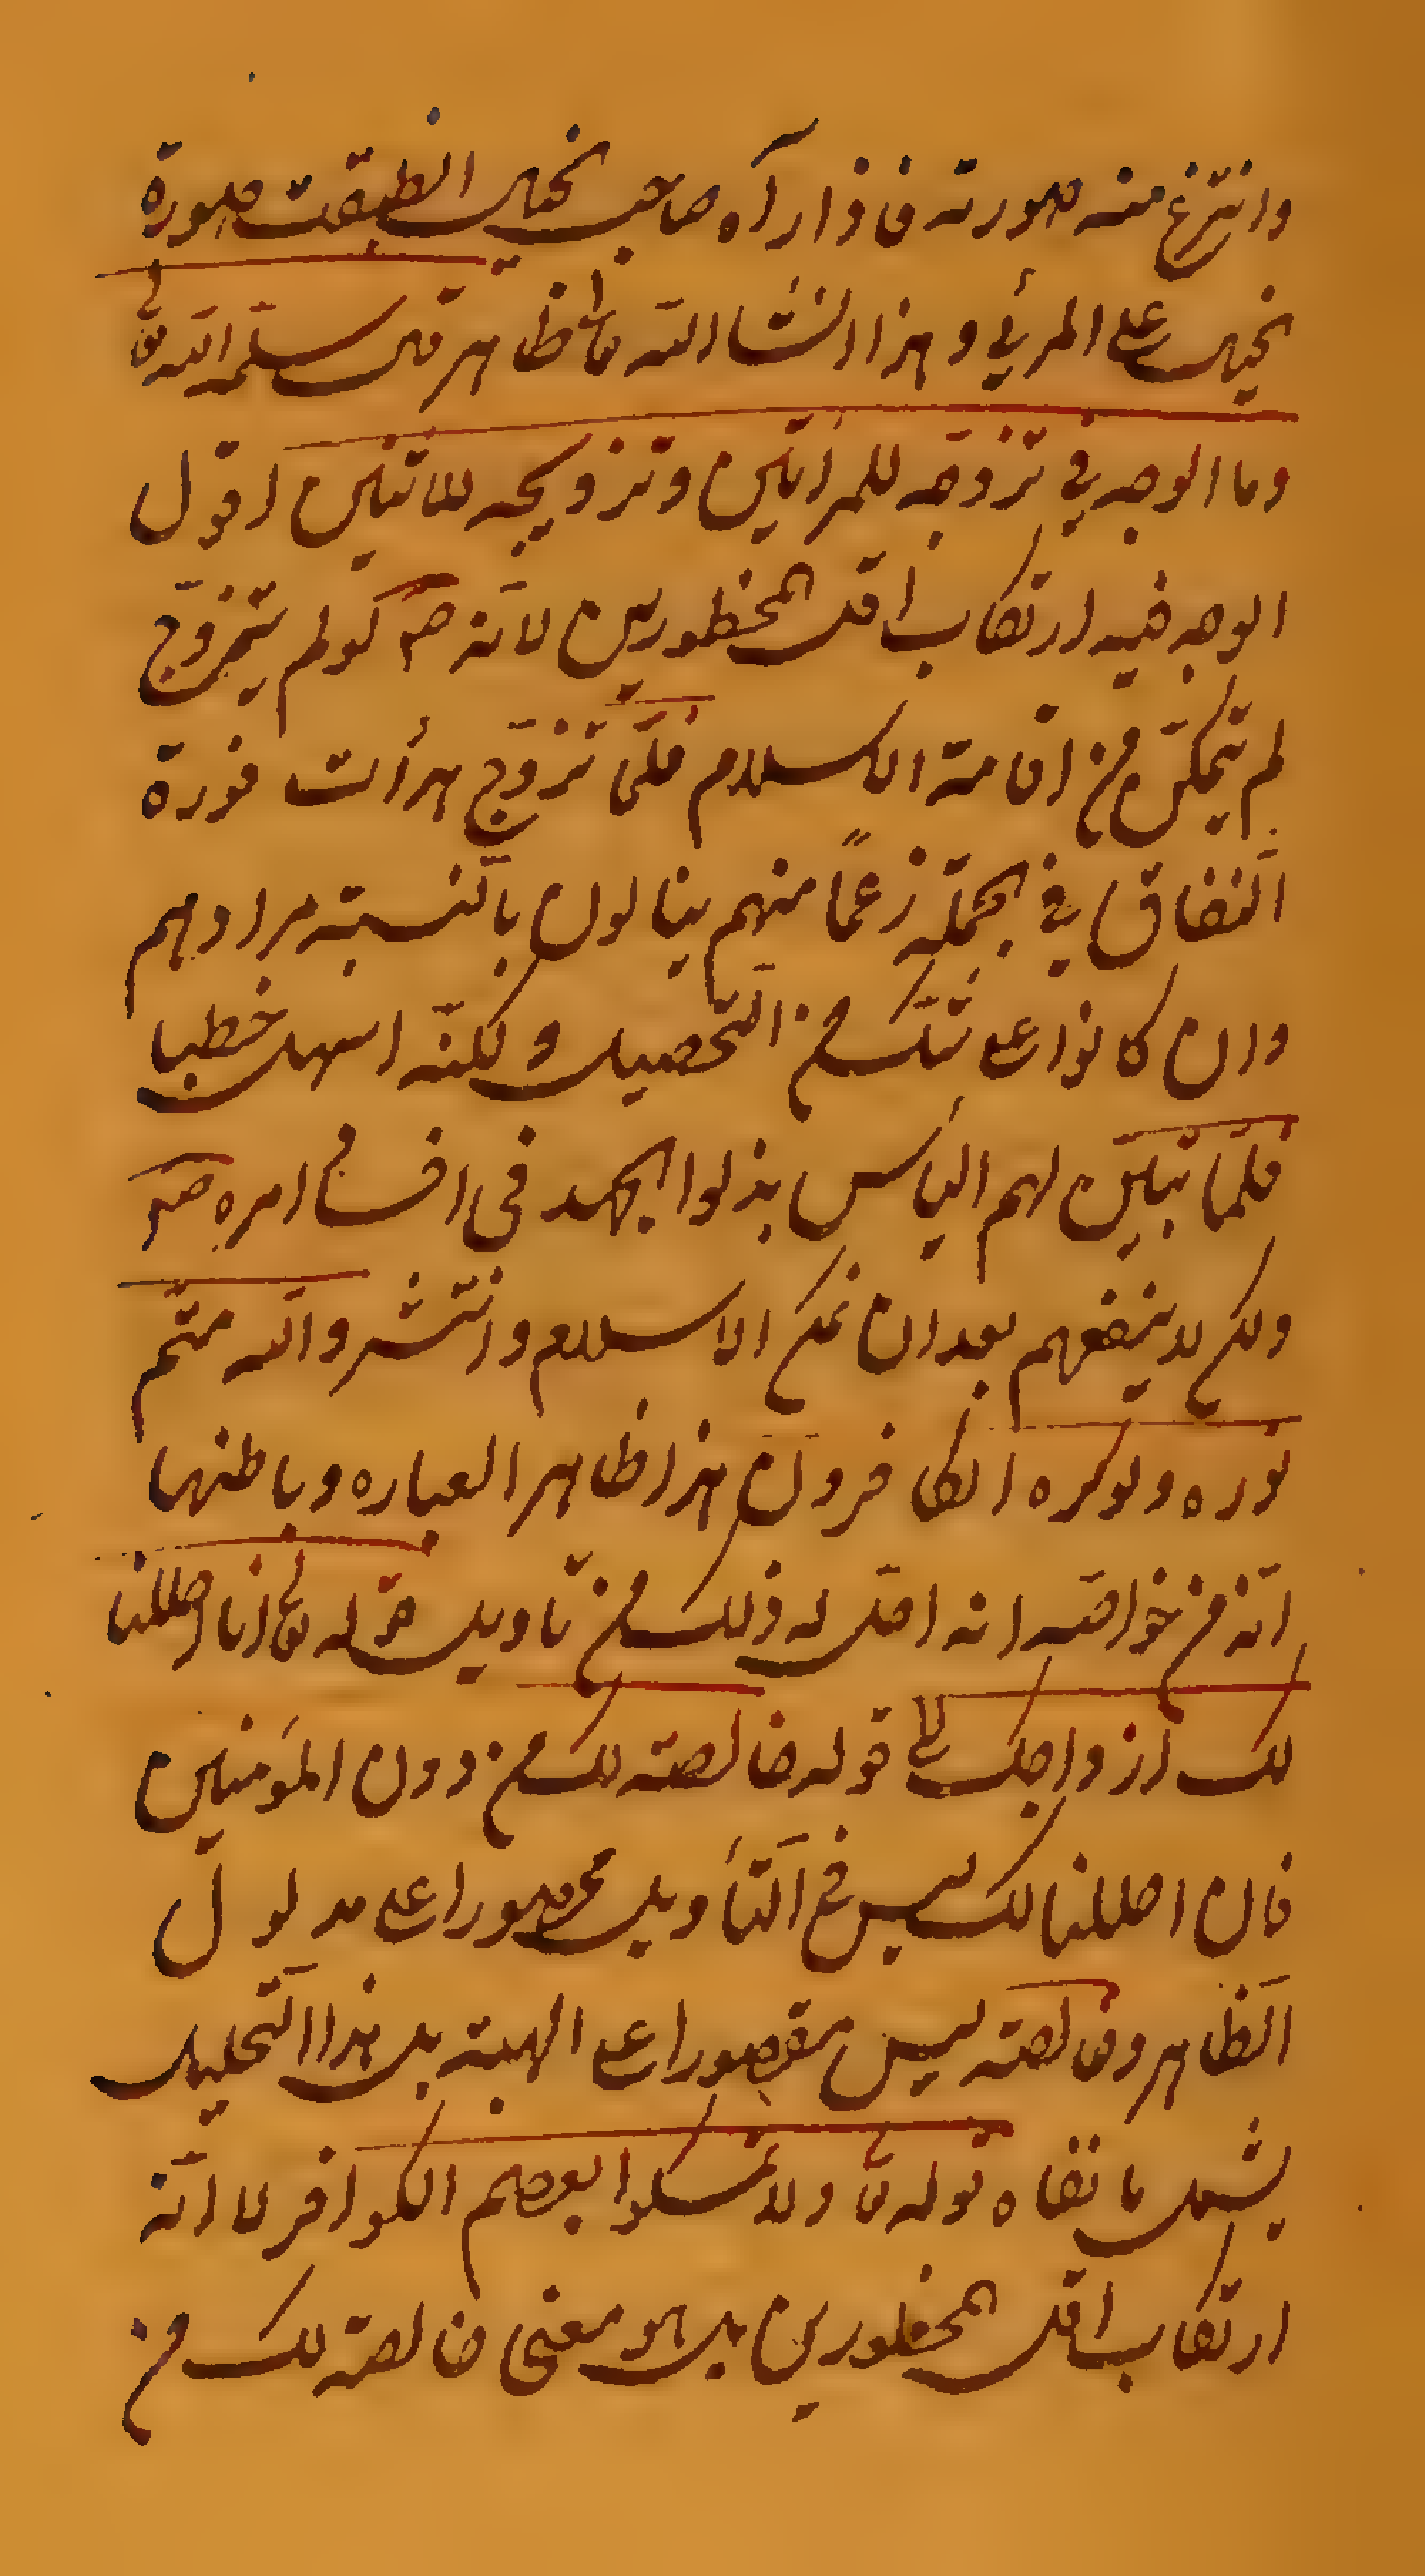 وانتزع منه صورته فاذا رآه صاحب الخيال انطبقت صورة
الخيال على المرئي وهذا انشاء الله تعالى ظاهر قال سلمه الله تعالى
وما الوجه في تزوجه للمرأتين وتزويجه للاثنين اقول
الوجه فيه ارتكاب أقل المحظورين لانه ص لو لم يتزوج
لم يتمكن من اقامة الاسلام فلما تزوج هدأت فورة
النفاق في الجملة زعماً منهم ينالون بالنسبة مرادهم
وان كانوا على شك من التحصيل ولكنه اسهل خطبا
فلما تبين لهم اليأس بذلوا الجهد في افساد امره ص
ولكن لا ينفعهم بعد ان تمكن الاسلام وانتشر والله متم
نوره ولو كره الكافرون هذا ظاهر العباره وباطنها
انه من خواصه انه احل له ذلك من تاويل قوله تعالى انا احللنا
لك ازواجك الى قوله خالصة لك من دون المؤمنين
فان احللنا لك ليس في التأويل محصورا على مدلول
الظاهر وخالصة ليس مقصورا على الهبة بل هذا التحليل
يشمل ما نفاه قوله تعالى ولا تمسكوا بعصم الكوافر لا انه
ارتكاب اقل المحظورين بل هو معنى خالصة لك من